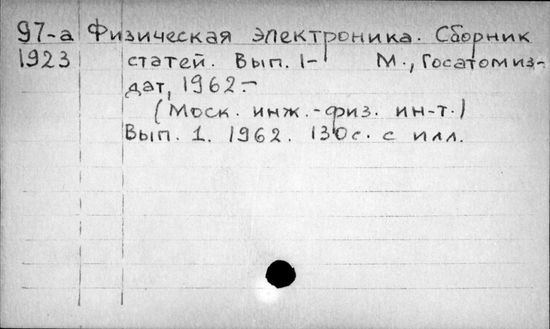 97-а Физическая электроника. Сборник
1923 статей. Вып. 1- М., Госатомиз-
дат, 1962.-
(Моск. инж.-физ. ин-т.)
Вып. 1. 1962. 130с. с илл.